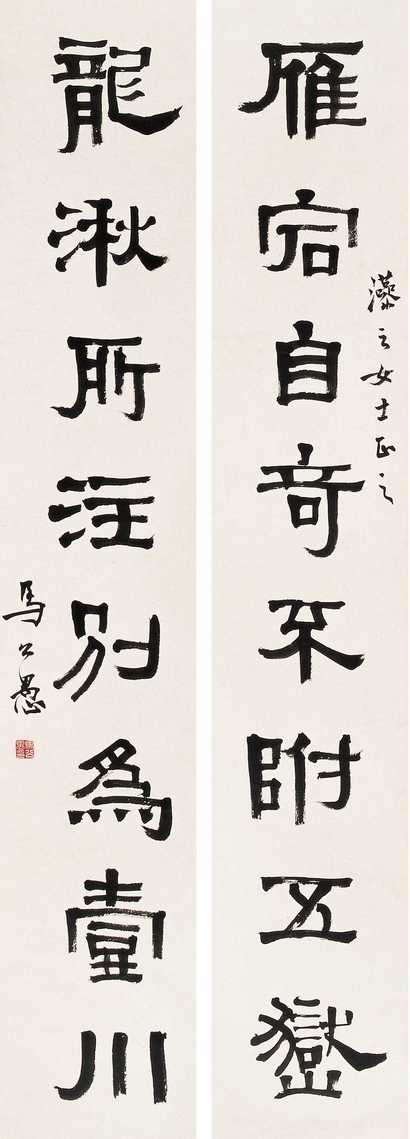 雁宕自奇不附五嶽
藻之女士正之
龍湫所注別為壹川
馬公愚